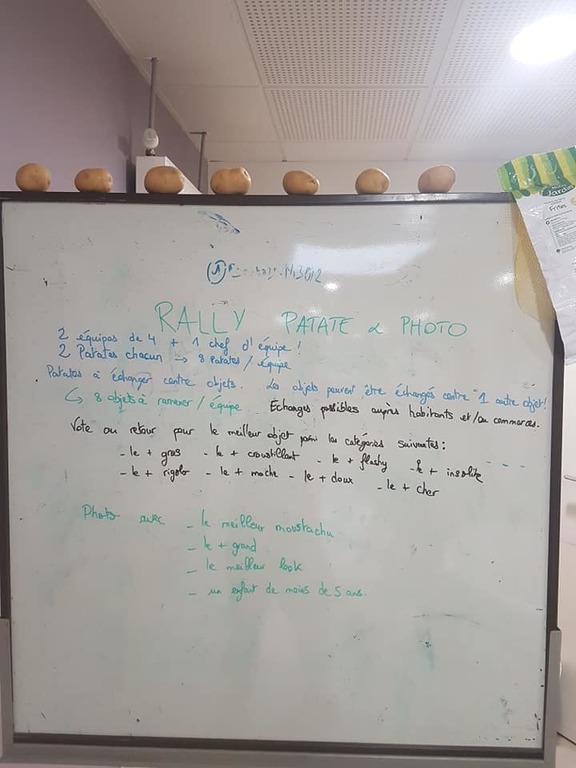 RALLY PATATE & PHOTO
2 équipes de 4 + 1 chef d'équipe !
2 Patates chacun → 8 patates / équipe
Patates à échanger contre objets. Les objets peuvent être échangés contre 1 autre objet !
↳ 8 objets à ramener / équipe Echanges possibles auprès habitants et/ou commerces.
Vote au retour pour le meilleur objet parmi les catégories suivantes :
- le + gros - le + croustillant - le + flashy - le + insolite - - -
- le + rigolo - le + moche - le + doux - le + cher
Photo avec - le meilleur moustachu
- le + grand
- le meilleur look
- un enfant de moins de 5 ans.
Jardin
Frites